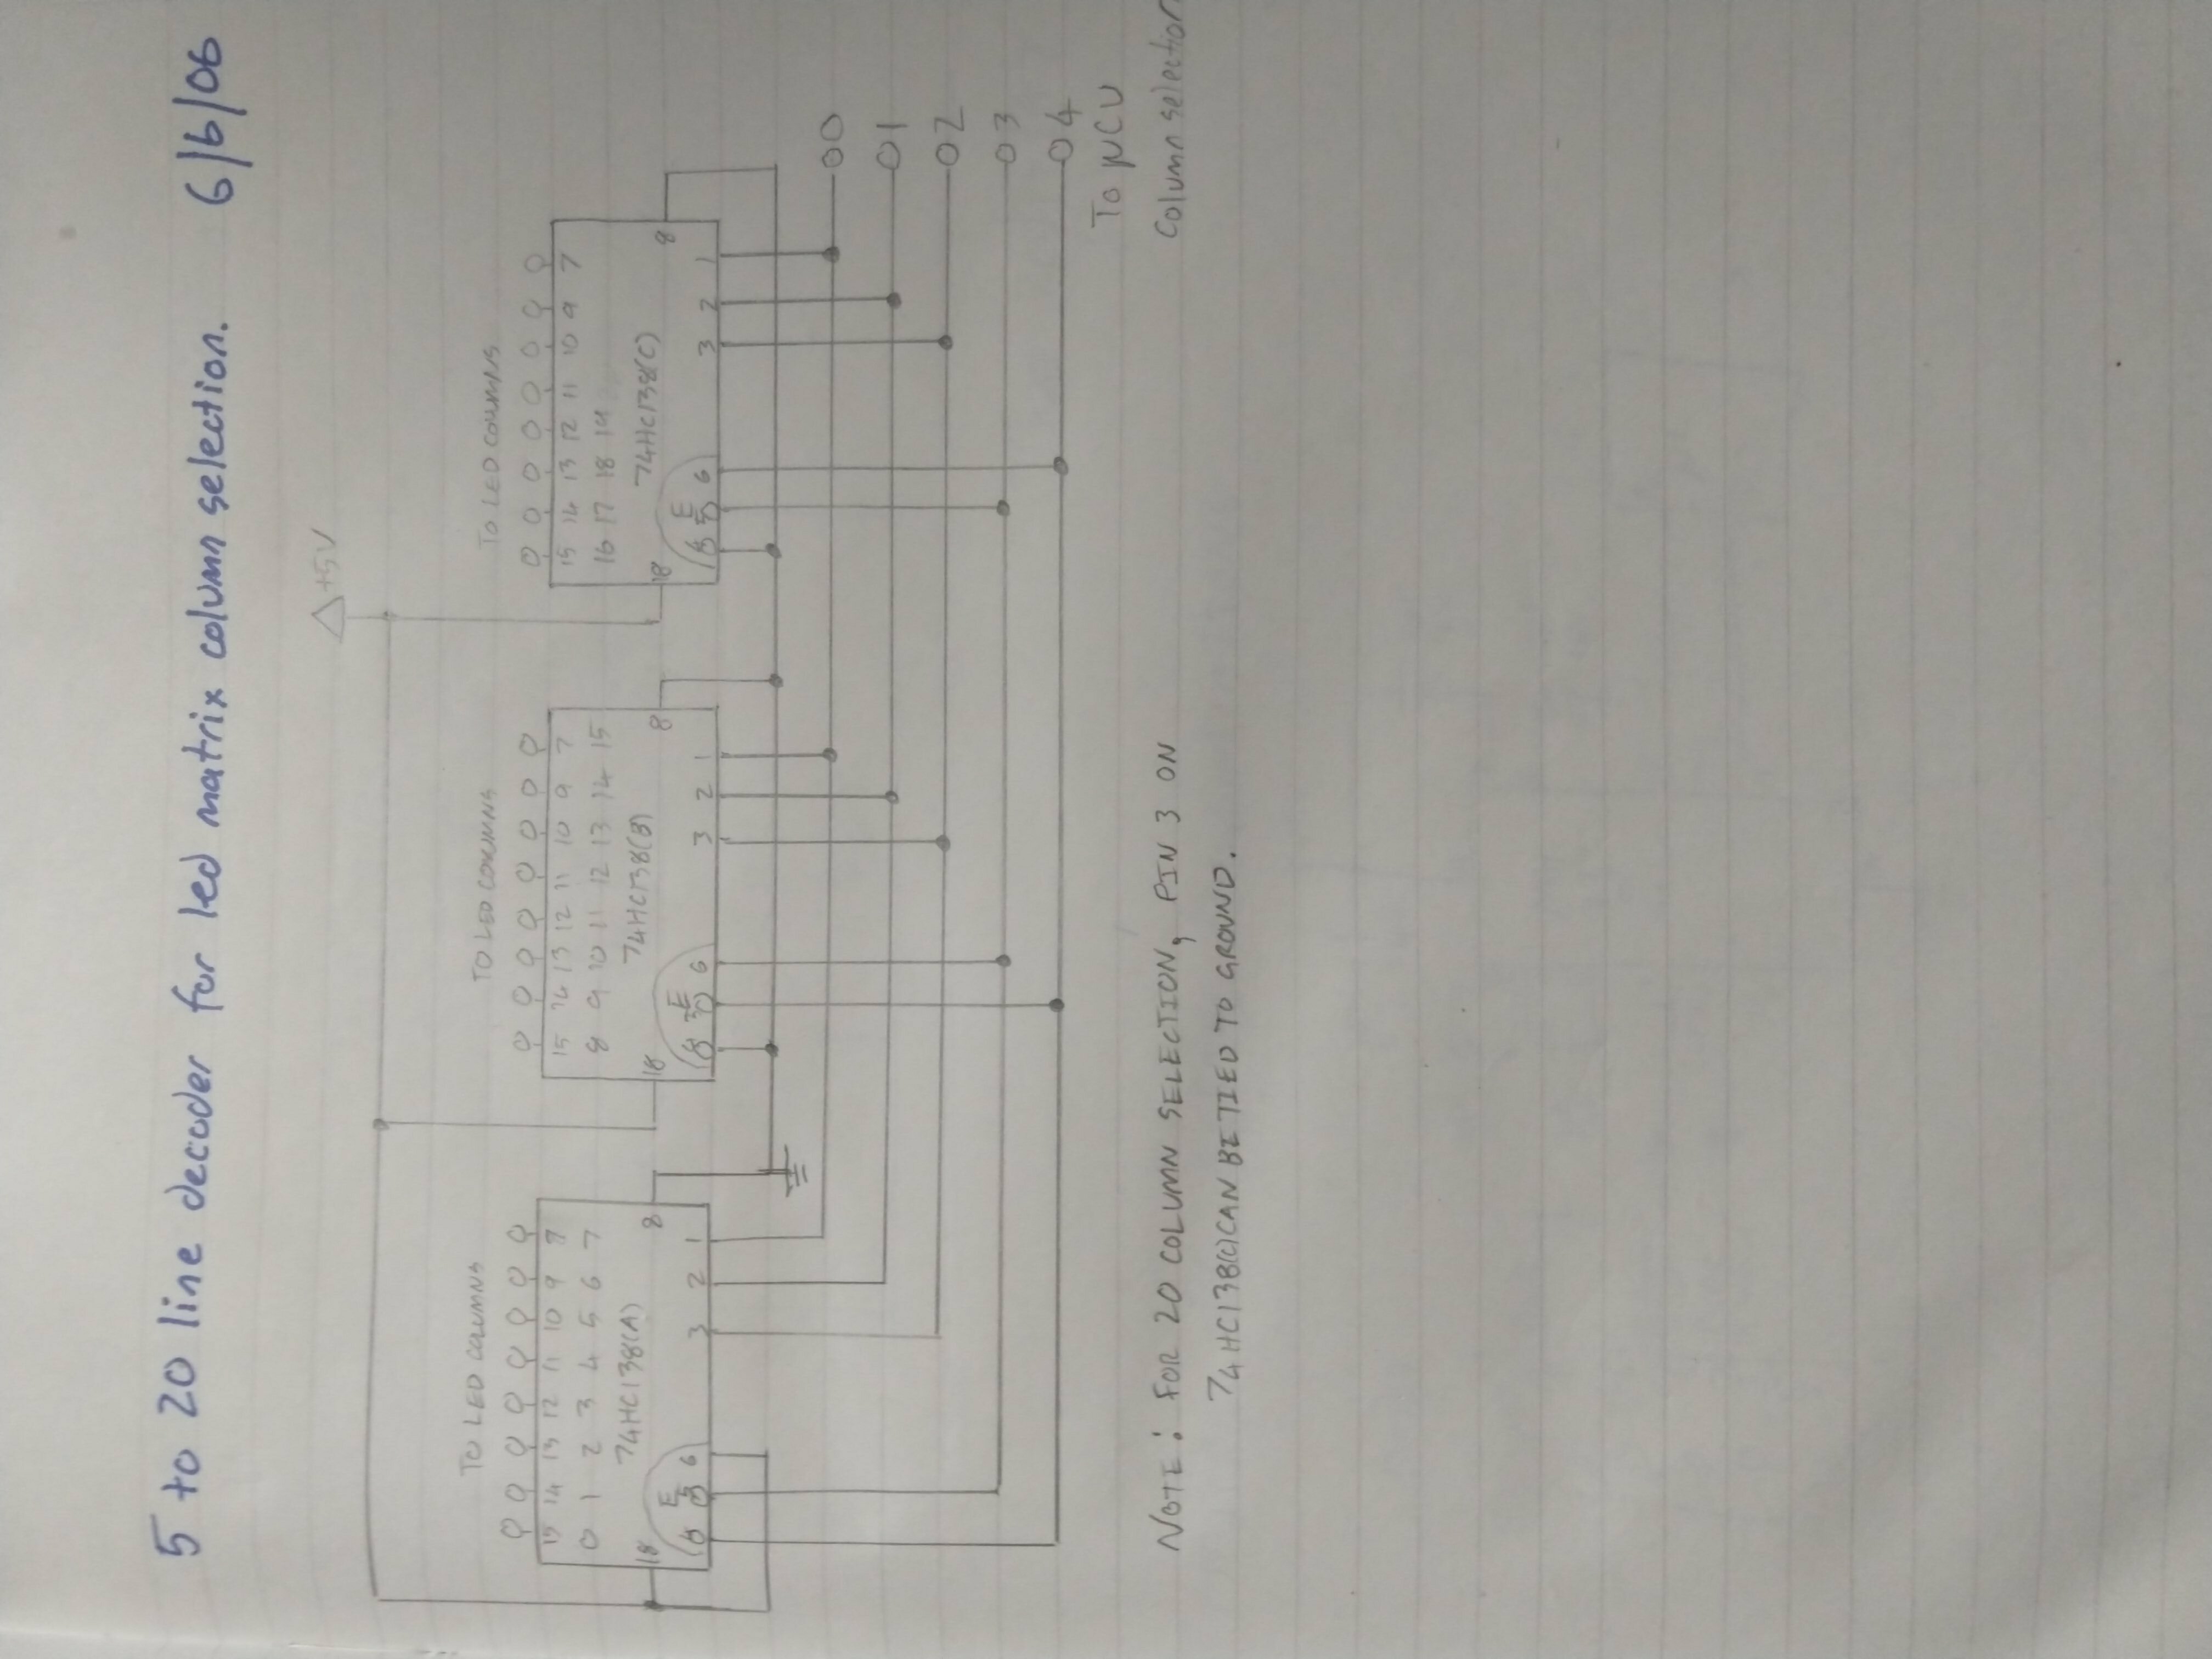 5 to 20 line decoder for led matrix column selection. 6/6/06
+5V
TO LED COLUMNS
15 14 13 12 11 10 9 7
0 1 2 3 4 5 6 7
74HC138(A)
18
E
8
4 5 6
3 2 1
TO LED COLUMNS
15 14 13 12 11 10 9 7
8 9 10 11 12 13 14 15
74HC138(B)
18
E
8
4 5 6
3 2 1
TO LED COLUMNS
15 14 13 12 11 10 9 7
16 17 18 19
74HC138(C)
18
E
8
4 5 6
3 2 1
00
01
02
03
04
To µCU
Column selection
NOTE: FOR 20 COLUMN SELECTION, PIN 3 ON
74HC138(C) CAN BE TIED TO GROUND.